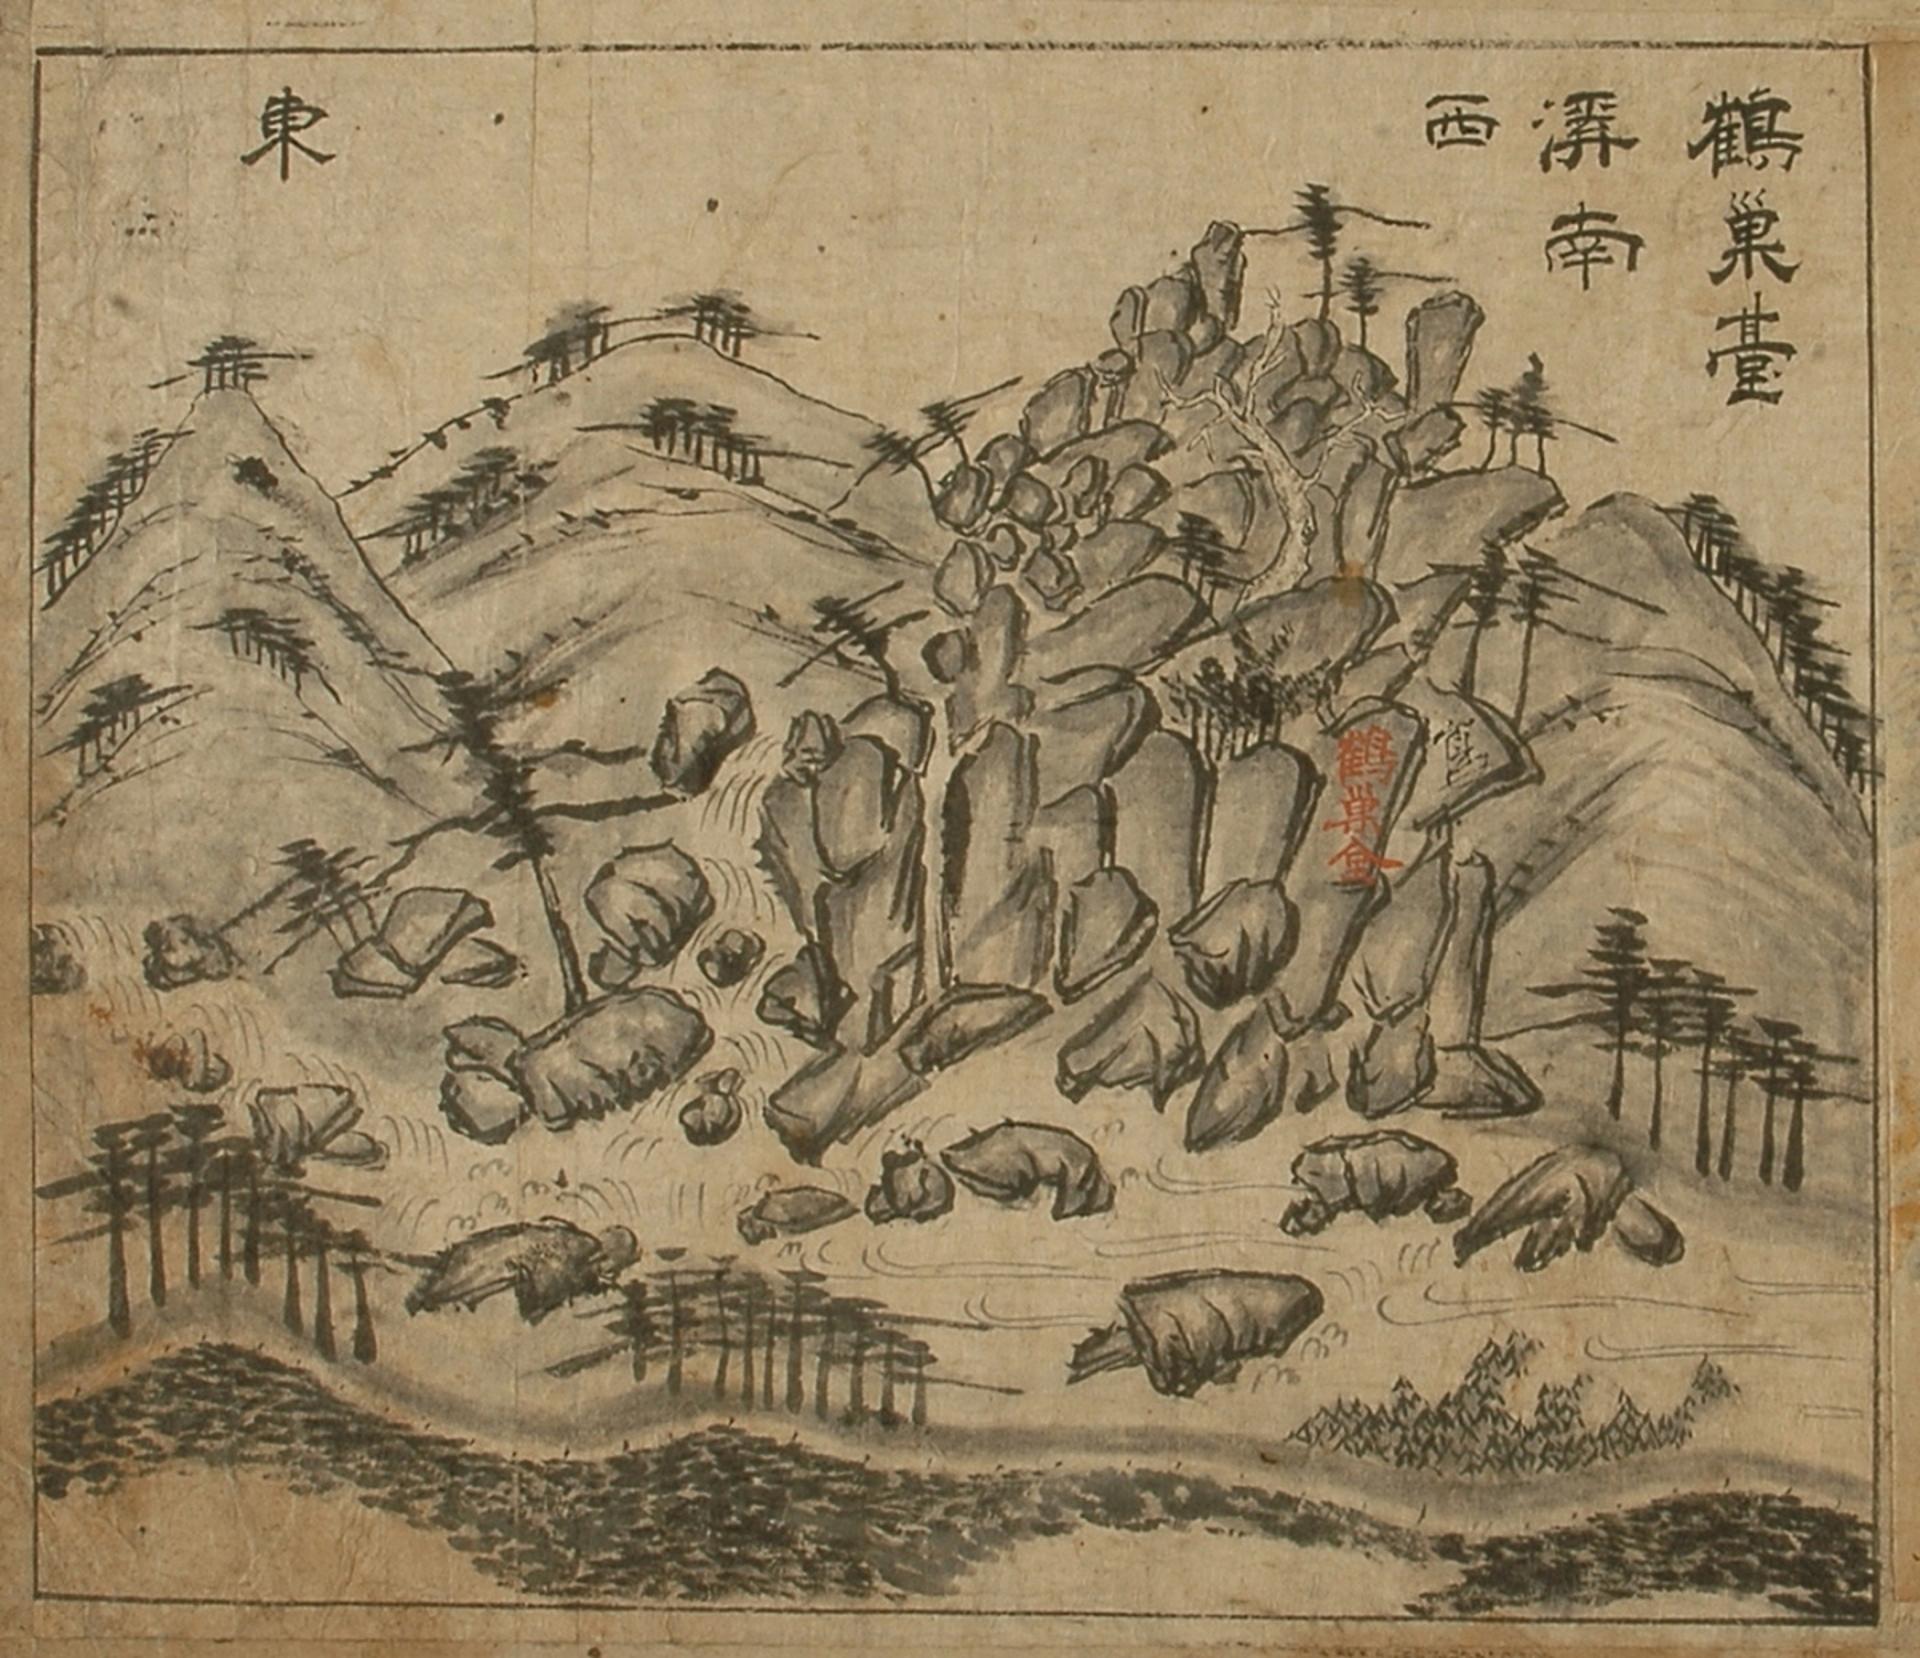 鶴巢臺
溪南
西
東
鶴巢